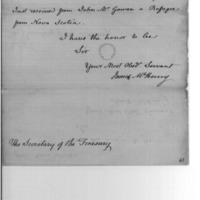 Just received from John Mc Gowan a Refugee
from Nova Scotia.
I have the honor to be
Sir
Your Most Obed. Servant
James McHenry
The Secretary of the Treasury